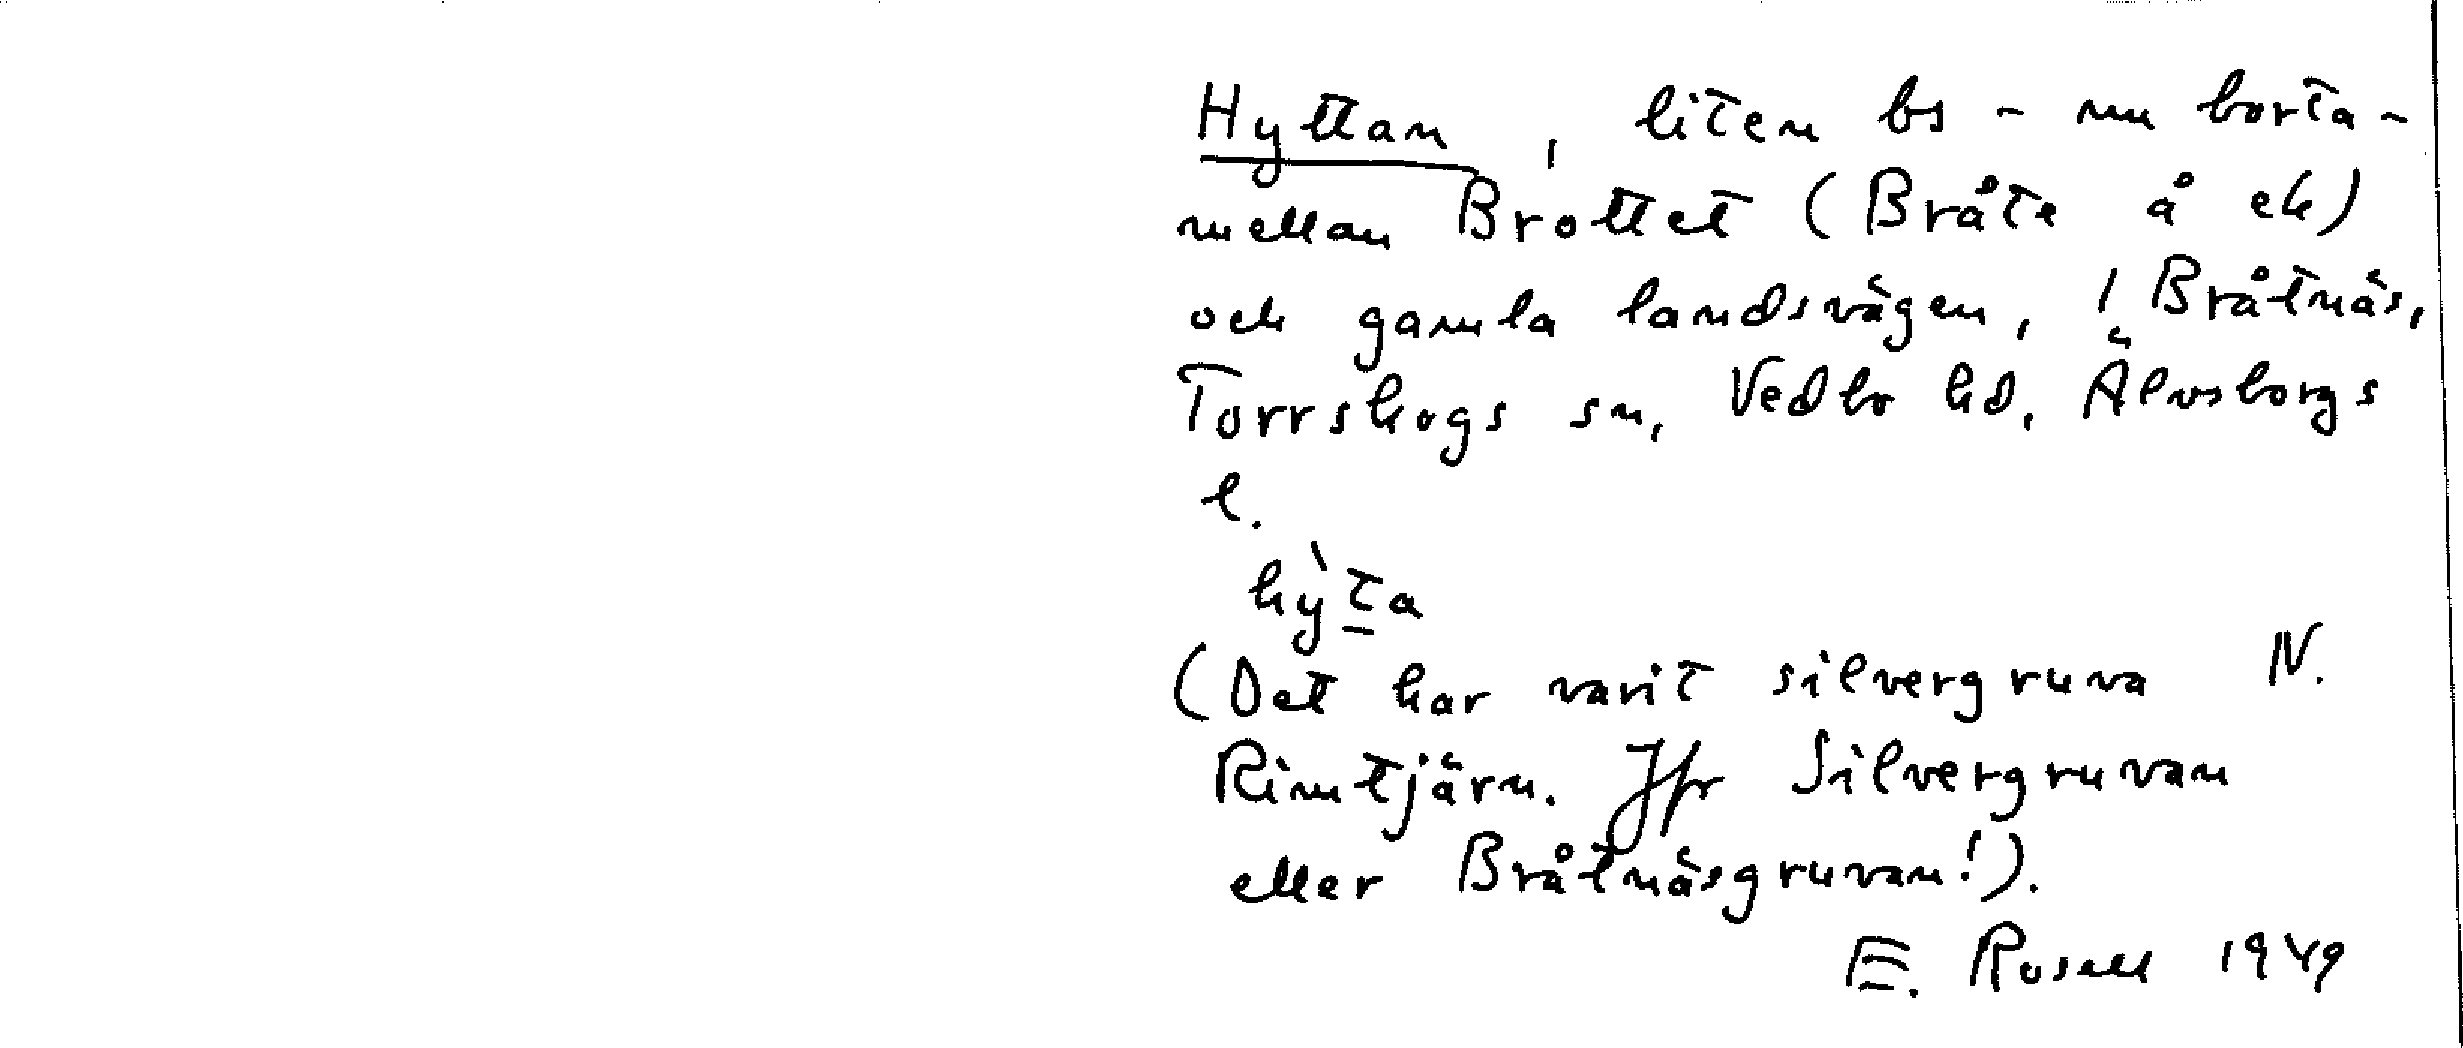 Hyttan, liten bs - nu borta -
mellan Brottet (Bråte å ek)
och gamla landsvägen, 1 Bråtnäs,
Torrskogs sn, Vedbo hd, Älvsborgs
l.
hỳt̲a
(Det har varit silvergruva N.
Rimtjärn. Jfr Silvergruvan
eller Bråtnäsgruvan!).
E. Rosell 1949